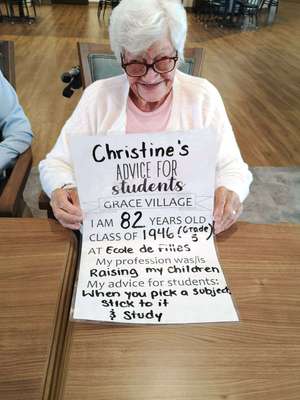 Christine's
ADVICE FOR
students
GRACE VILLAGE
I AM 82 YEARS OLD
CLASS OF 1946 (Grade 5)
AT Ecole de Filles
My profession was/is
Raising my Children
My advice for students:
When you pick a subject,
stick to it
& Study